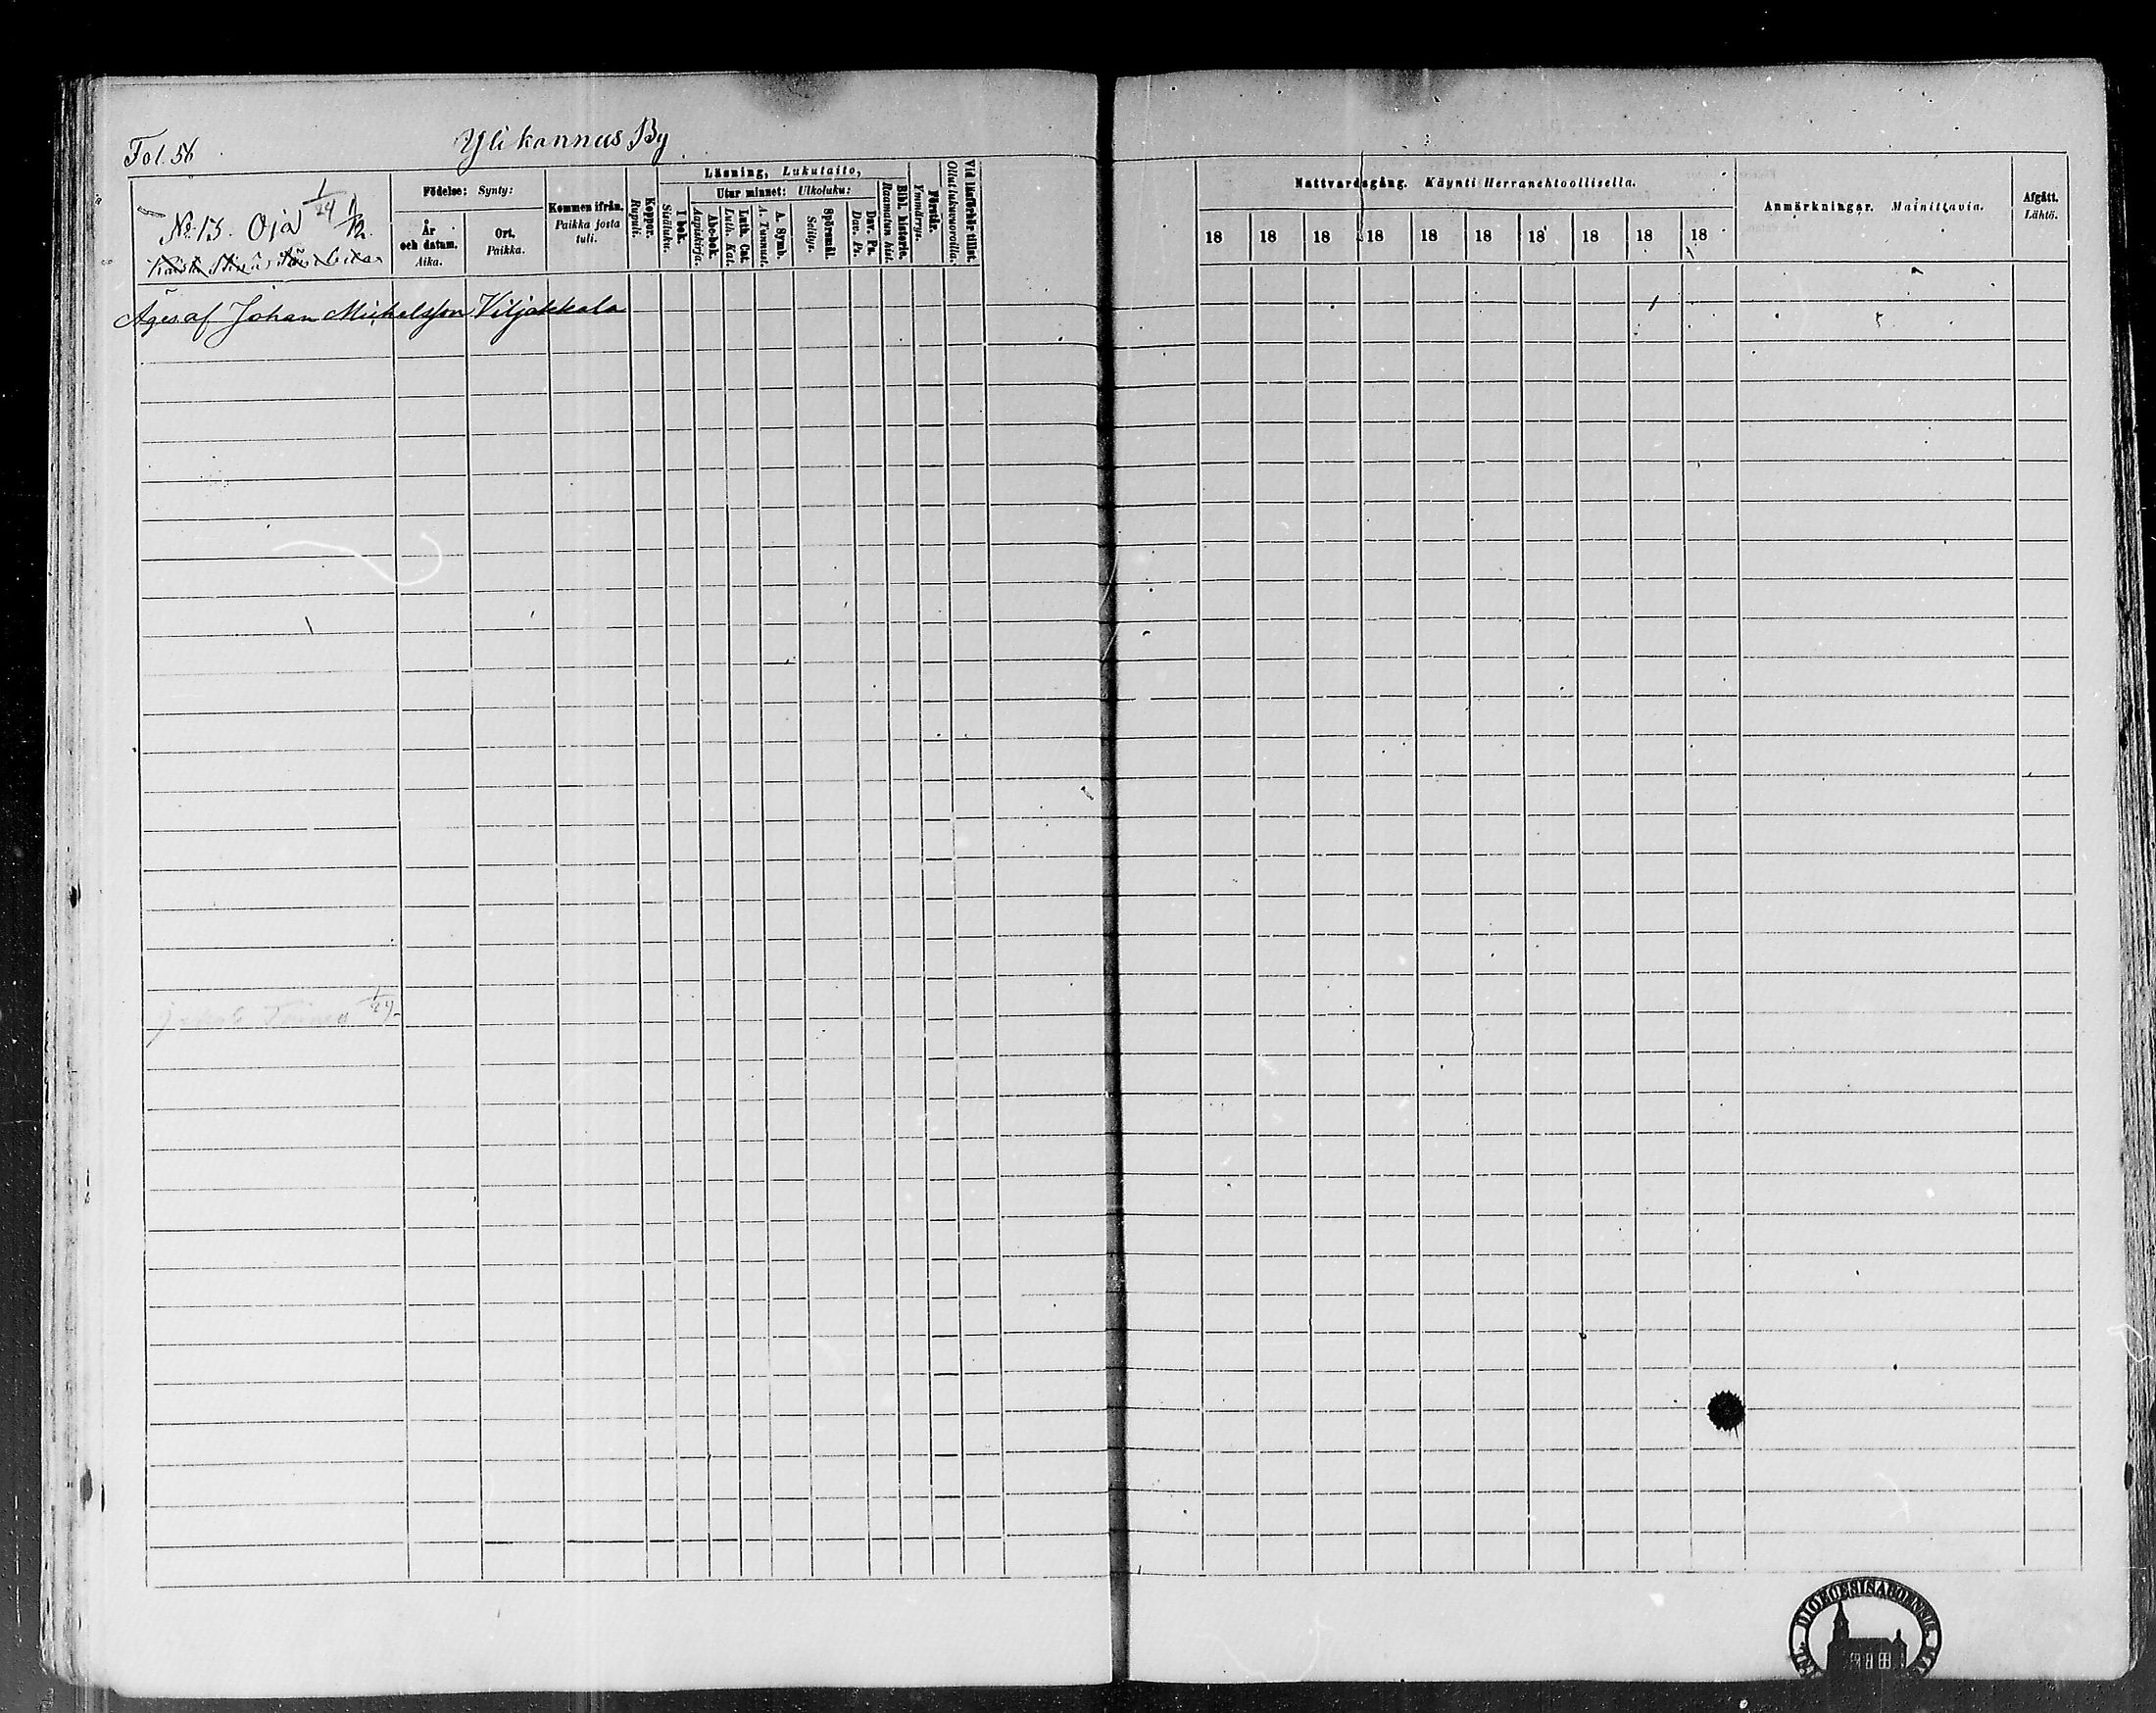 Fol. 56
Ylikannus By
No 13. Oja 1/24 1/12.
Födelse: Synty:
År och datum. Aika.
Ort. Paikka.
Kommen ifrån. Paikka josta tuli.
Koppor. Rupuli.
Läsning, Lukutaito,
I bok. Sisäluku.
Utur minnet: Ulkoluku:
Abc-bok. Aapiskirja.
Luth. Cat. Luth. Kat.
A. Symb. A. Tunnust.
Spörsmål. Selitys.
Dav. Ps. Dav. Ps.
Bibl. historie. Raamatun hist.
Förstår. Ymmärrys.
Vid läsförhör tillst. Ollut lukuvuoroilla.
Ägesaf Johan Michelsson Viljakkala
1/24
Nattvardsgång. Käynti Herranehtoollisella.
18 18 18 18 18 18 18 18 18 18
Anmärkningar. Mainittavia.
Afgått. Lähtö.
DIOECESIS ABOENSIS